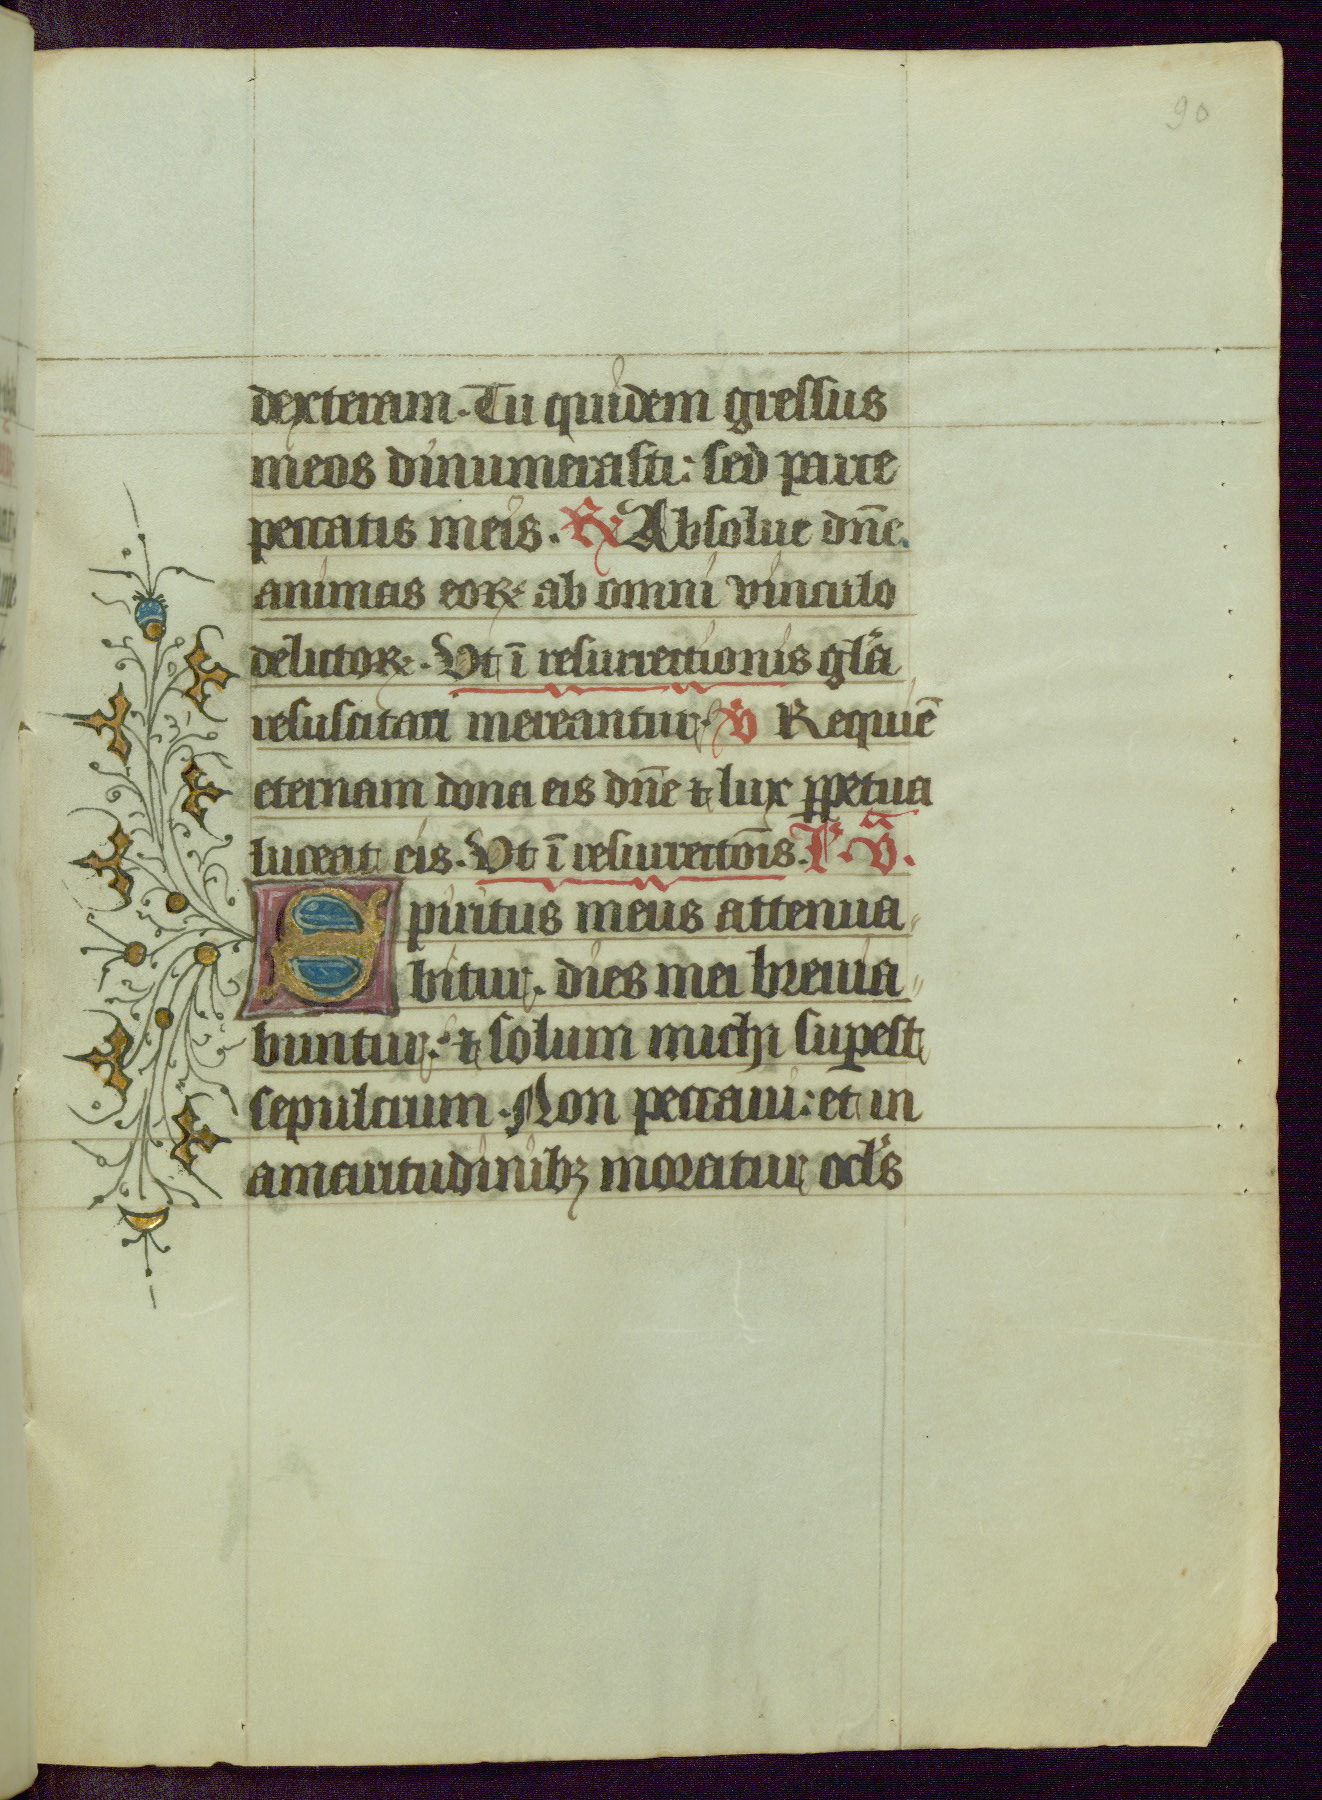 90
dexteram. Tu quidem gressus
meos dinumerasti: sed parce
peccatis meis. ℟ Absolue dn̄e
animas eoꝝ ab omni vinculo
delictoꝝ. Vt ī resurrectionis gl̄a
resuscitati mereantur. ℣ Requiē
eternam dona eis dn̄e ⁊ lux ꝑpetua
luceat eis. Vt ī resurrectōis. l̄c. v̄.
Spiritus meus attenua
bitur. dies mei breuia
buntur. ⁊ solum michi suꝑest
sepulcrum. Non peccaui: et in
amaritudinibꝫ moratur ocl̄s